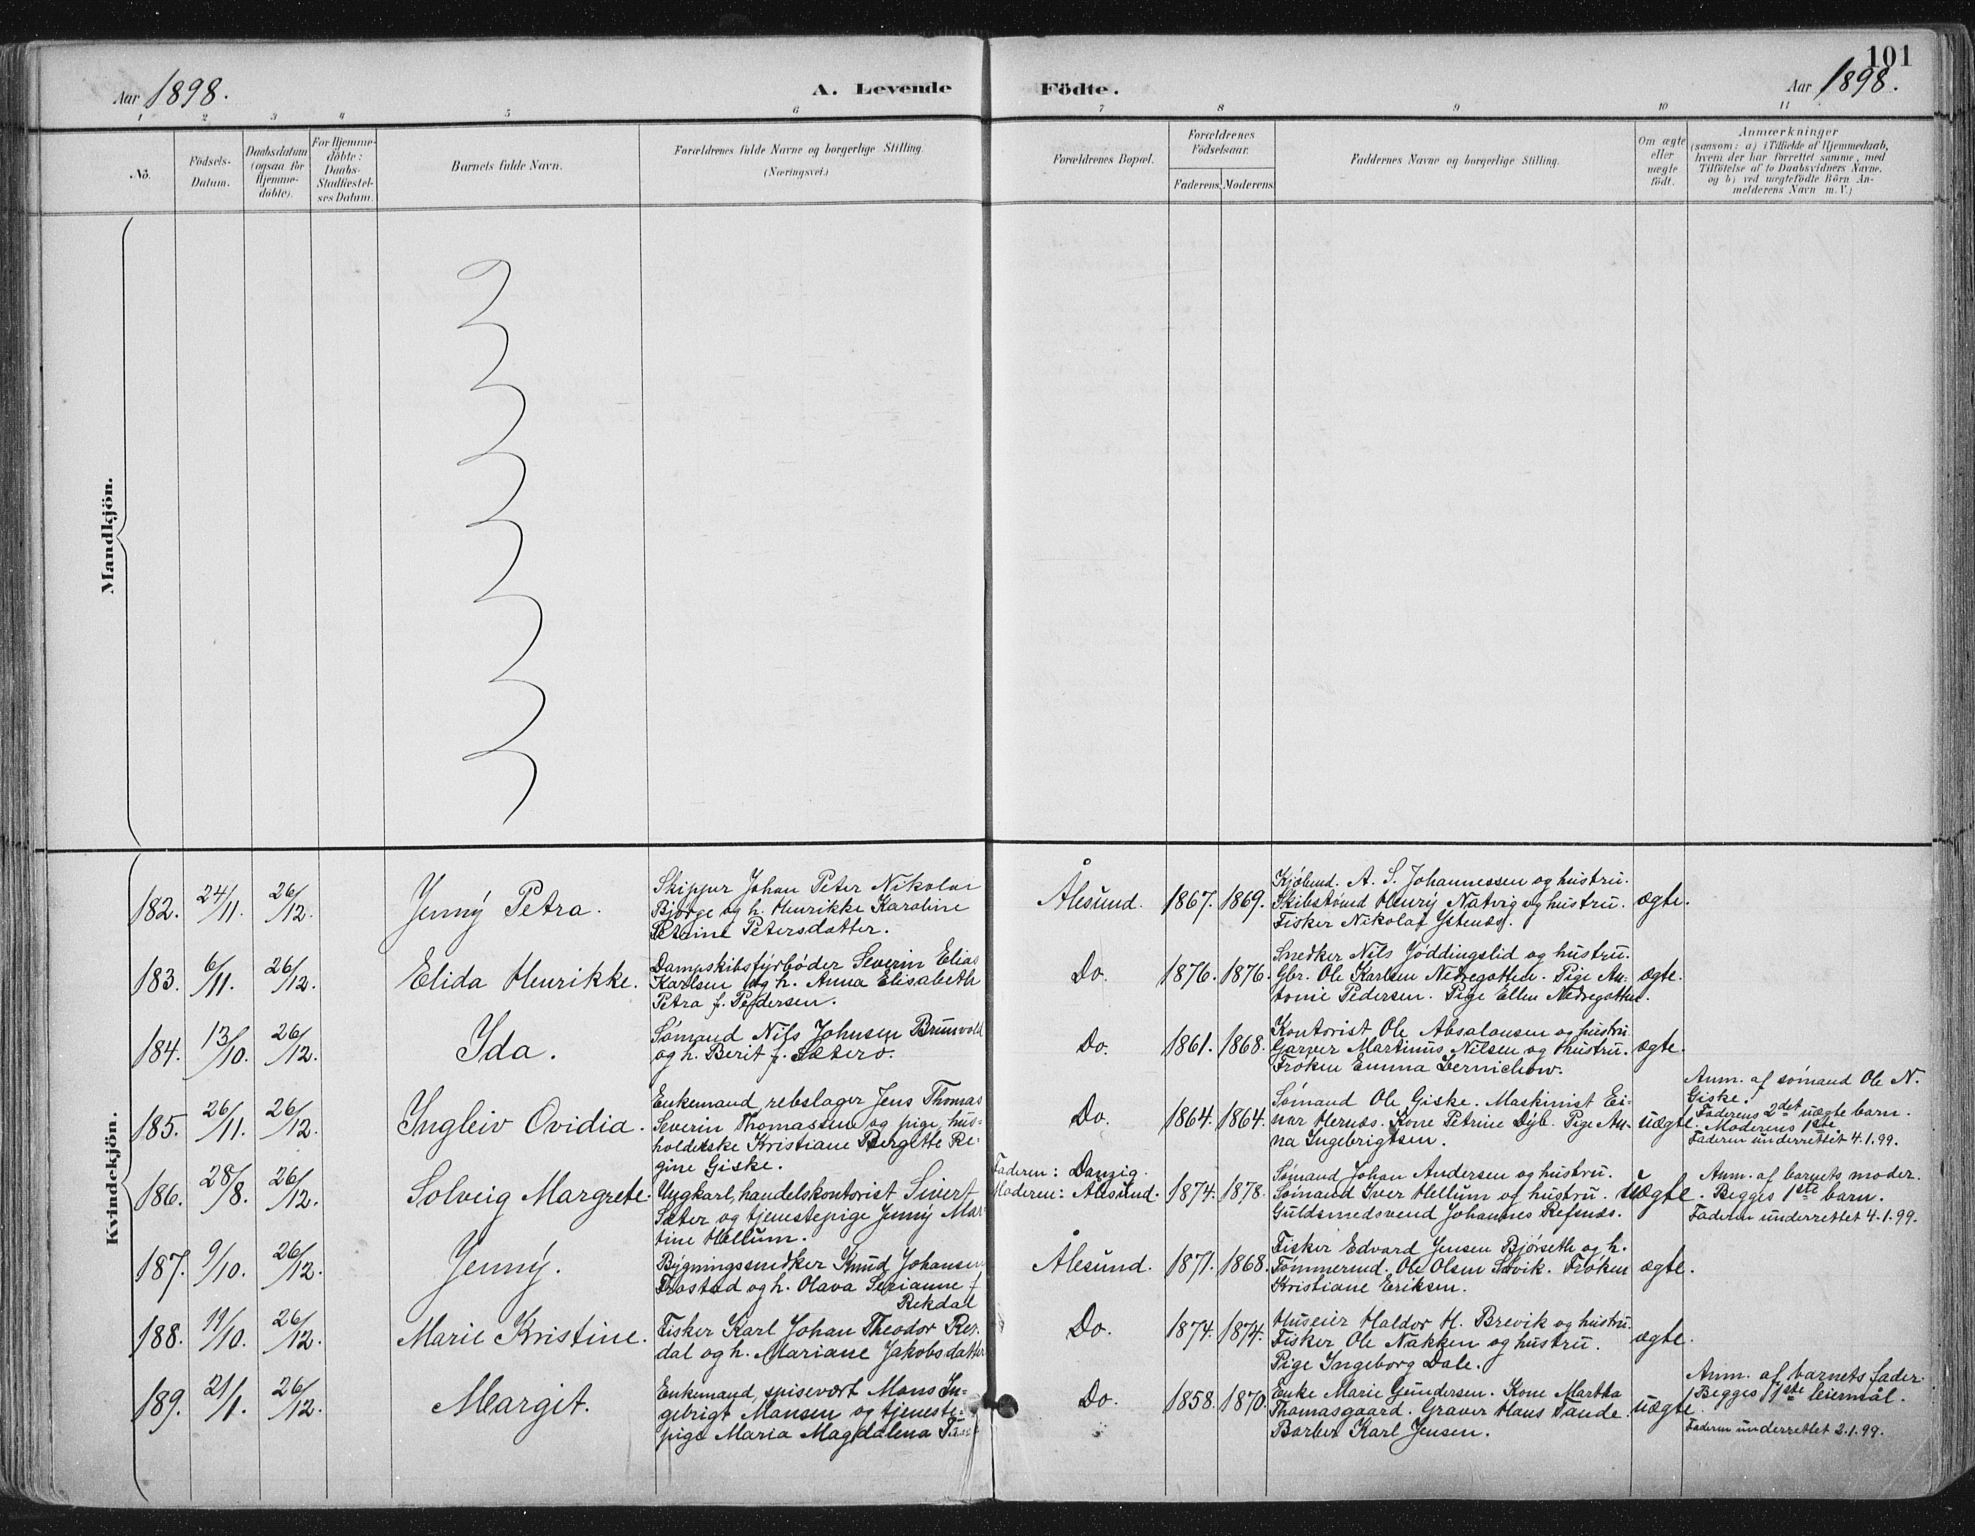 101
Aar 1898.
A. Levende Födte.
Aar 1898.
1 2 3 4 5 6 7 8 9 10 11
No.
Födsels-
Datum.
Daabsdatum
(ogsaa for
Hjemme-
döbte).
For Hjemme-
döbte:
Daabs-
Stadfæstel-
ses Datum.
Barnets fulde Navn.
Forældrenes fulde Navne og borgerlige Stilling.
(Næringsvei.)
Forældrenes Bopæl.
Forældrenes
Födselsaar.
Faderens. Moderens.
Faddernes Navne og borgerlige Stilling.
Om ægte
eller
uægte
födt.
Anmærkninger
(saasom: a) i Tilfælde af Hjemmedaab,
hvem der har forrettet samme, med
Tilföielse af to Daabsvidners Navne.
og b) ved uægtefödte Börn An-
melderens Navn m. V.)
Mandkjön.
Kvindekjön.
182. 24/11. 26/12. Jenny Petra.
Skipper Johan Peter Nikolai
Bjørge og h. Henrikke Karoline
Petrine Petersdatter.
Ålesund. 1867. 1869.
Kjøbmd. A. S. Johannessen og hustru.
Skibstømd Henry Natvig og hustru.
Fisker Nikolaf Ystenæs.
ægte.
183. 6/11. 26/12. Elida Henrikke.
Dampskibsfyrbøder Severin Elias
Karlsen og h. Anna Elisabeth
Petra f. Pedersen.
Do. 1876. 1876.
Snedker Nils Jøddingslid og hustru.
Gbr. Ole Karlsen Nedregotten. Pige An-
tonie Pedersen. Pige Ellen Nedregotten.
ægte.
184. 13/10. 26/12. Ida.
Sømand Nils Johnsen Brunvold
og h. Berit f. Sætero.
Do. 1861. 1868.
Kontorist Ole Absalonsen og hustru
Garver Martinus Nilsen og hustru.
Frøken Emma Zernichow.
ægte.
185. 26/11. 26/12. Ingleiv Ovidia.
Enkemand, rebslager Jens Thomas
Severin Thomassen og pige, hus-
holderske Kristiane Bergitte Re-
gine Giske.
Do. 1864. 1864.
Sømand Ole Giske. Maskinist Ei-
nar Hernæs. Kone Petrine Dyb. Pige An-
na Ingebrigtsen.
uægte.
Anm. af sømand Ole N.
Giske.
Faderens 2det uægte barn.
Moderens 1ste.
Faderen underrettet 4.1.99.
186. 28/8. 26/12. Solveig Margrete.
Ungkarl, handelskontorist Sivert
Sæter og tjenestepige Jenny Mar-
tine Hellum.
Faderen: Danzig.
Moderen: Ålesund. 1874. 1878.
Sømand Johan Andersen og hustru.
Sømand Iver Hellum og hustru.
Guldsmedsvend Johannes Refsnæs.
uægte.
Anm. af barnets moder.
Begges 1ste barn.
Faderen underrettet 4.1.99.
187. 9/10. 26/12. Jenny.
Bygningssnedker Knud Johansen
Frostad og h. Olava Serianne f.
Rekdal
Ålesund. 1871. 1868.
Fisker Edvard Jensen Bjørseth og h.
Tømmermd. Ole Olsen Søvik. Frøken
Kristiane Eriksen.
ægte.
188. 19/10. 26/12. Marie Kristine.
Fisker Karl Johan Theodor Rør-
dal og h. Mariane Jakobsdatter
Do. 1874. 1874.
Huseier Haldor H. Brevik og hustru.
Fisker Ole Nakken og hustru.
Pige Ingeborg Dale.
ægte.
189. 21/1. 26/12. Margit.
Enkemand, spisevært Mons In-
gebrigt Monsen og tjeneste-
pige Maria Magdalena
Do. 1858. 1870.
Enke Marie Gundersen. Kone Martha
Thomasgaard. Graver Hans Tande.
Barber Karl Jensen.
uægte.
Anm. af barnets fader.
Begges 1ste leiermål.
Faderen underrettet 2.1.99.